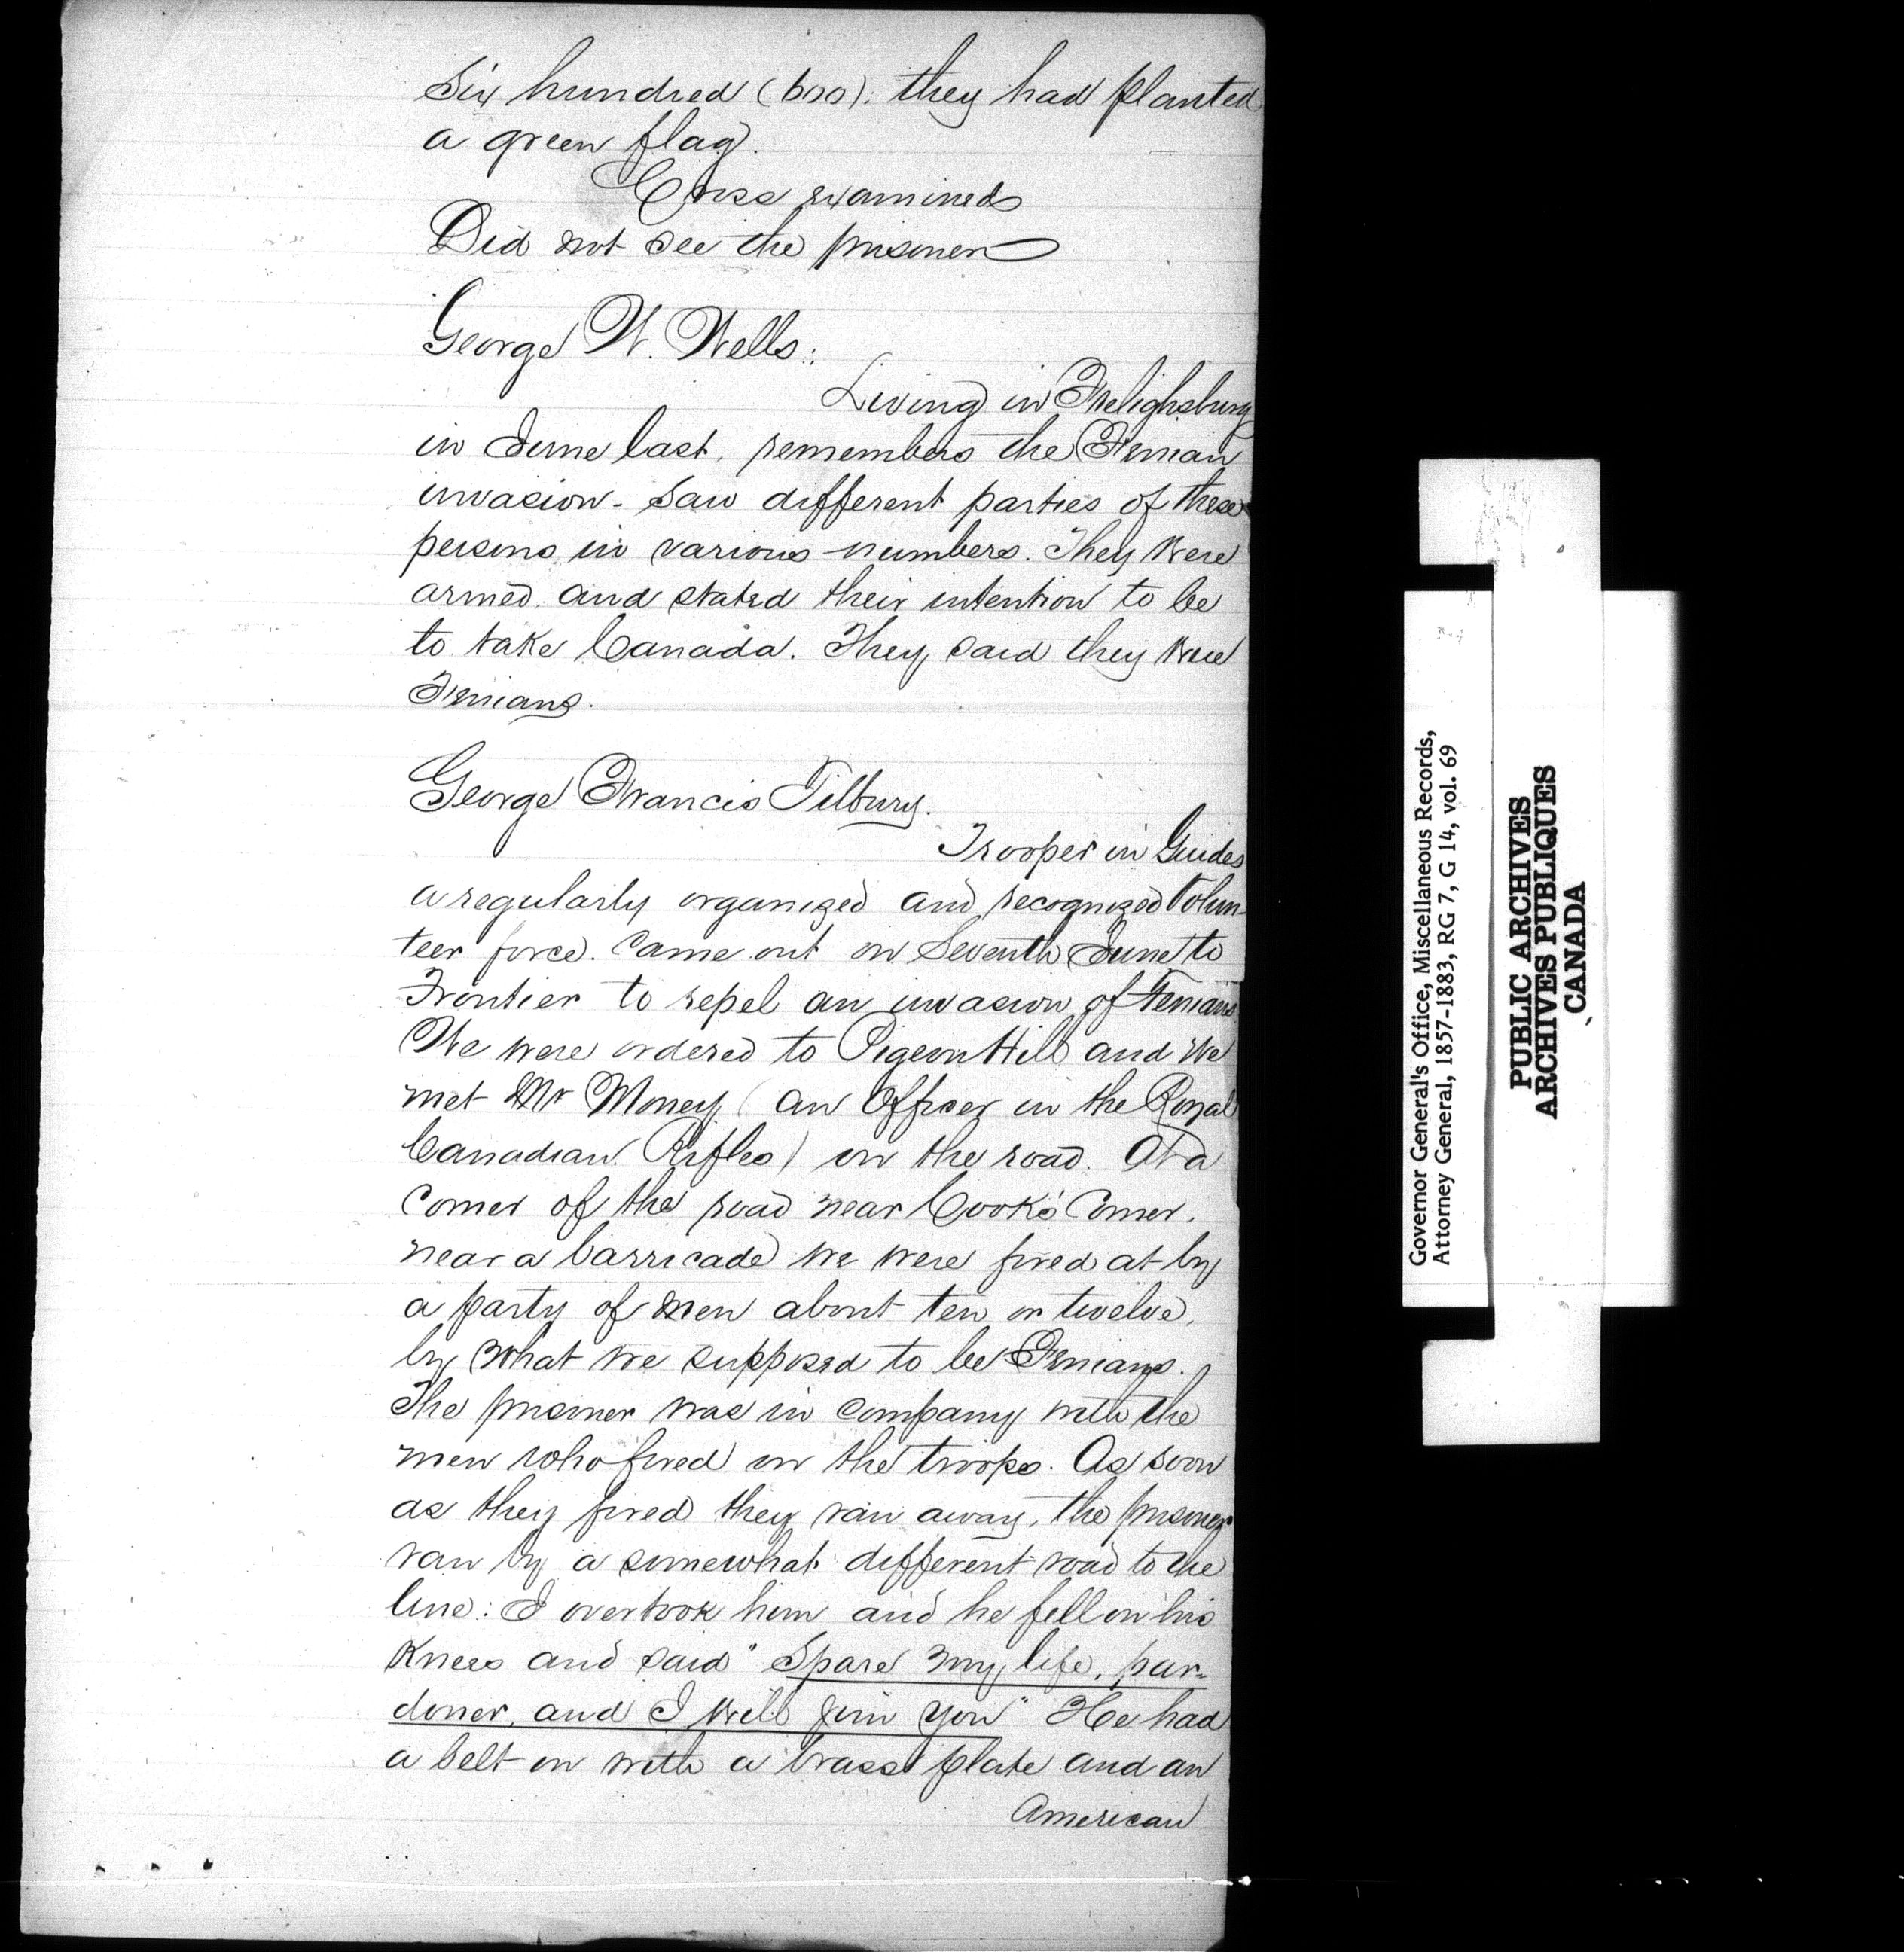 Six hundred (600). they had planted
a green flag.
Cross examined
Did not see the prisoner
George W. Wells:
Living in Frelighsburg
in June last, remembers the Fenian
invasion - Saw different parties of these
persons, in various numbers. They were
armed, and stated their intention to be
to take Canada. They said they were
Fenians.
George Francis Tilbury.
Trooper in Guides
a regularly organized and recognized Volun-
teer force. Came out on Seventh June to
Frontier to repel an invasion of Fenians.
We were ordered to Pigeon Hill and we
met Mr Money (an Officer in the Royal
Canadian Rifles) on the road. At a
corner of the road near Cook's Corner,
near a barricade we were fired at by
a party of men about ten or twelve,
by what we supposed to be Fenians.
The prisoner was in company with the
men who fired on the troops. As soon
as they fired they ran away, the prisoner
ran by a somewhat different road to the
line: I overtook him and he fell on his
Knees and said " Spare my life, par-
doner, and I will join you" He had
a belt on with a brass plate and an
American
Governor General's Office, Miscellaneous Records,
Attorney General, 1857-1883, RG 7, G 14, vol. 69
PUBLIC ARCHIVES
ARCHIVES PUBLIQUES
CANADA